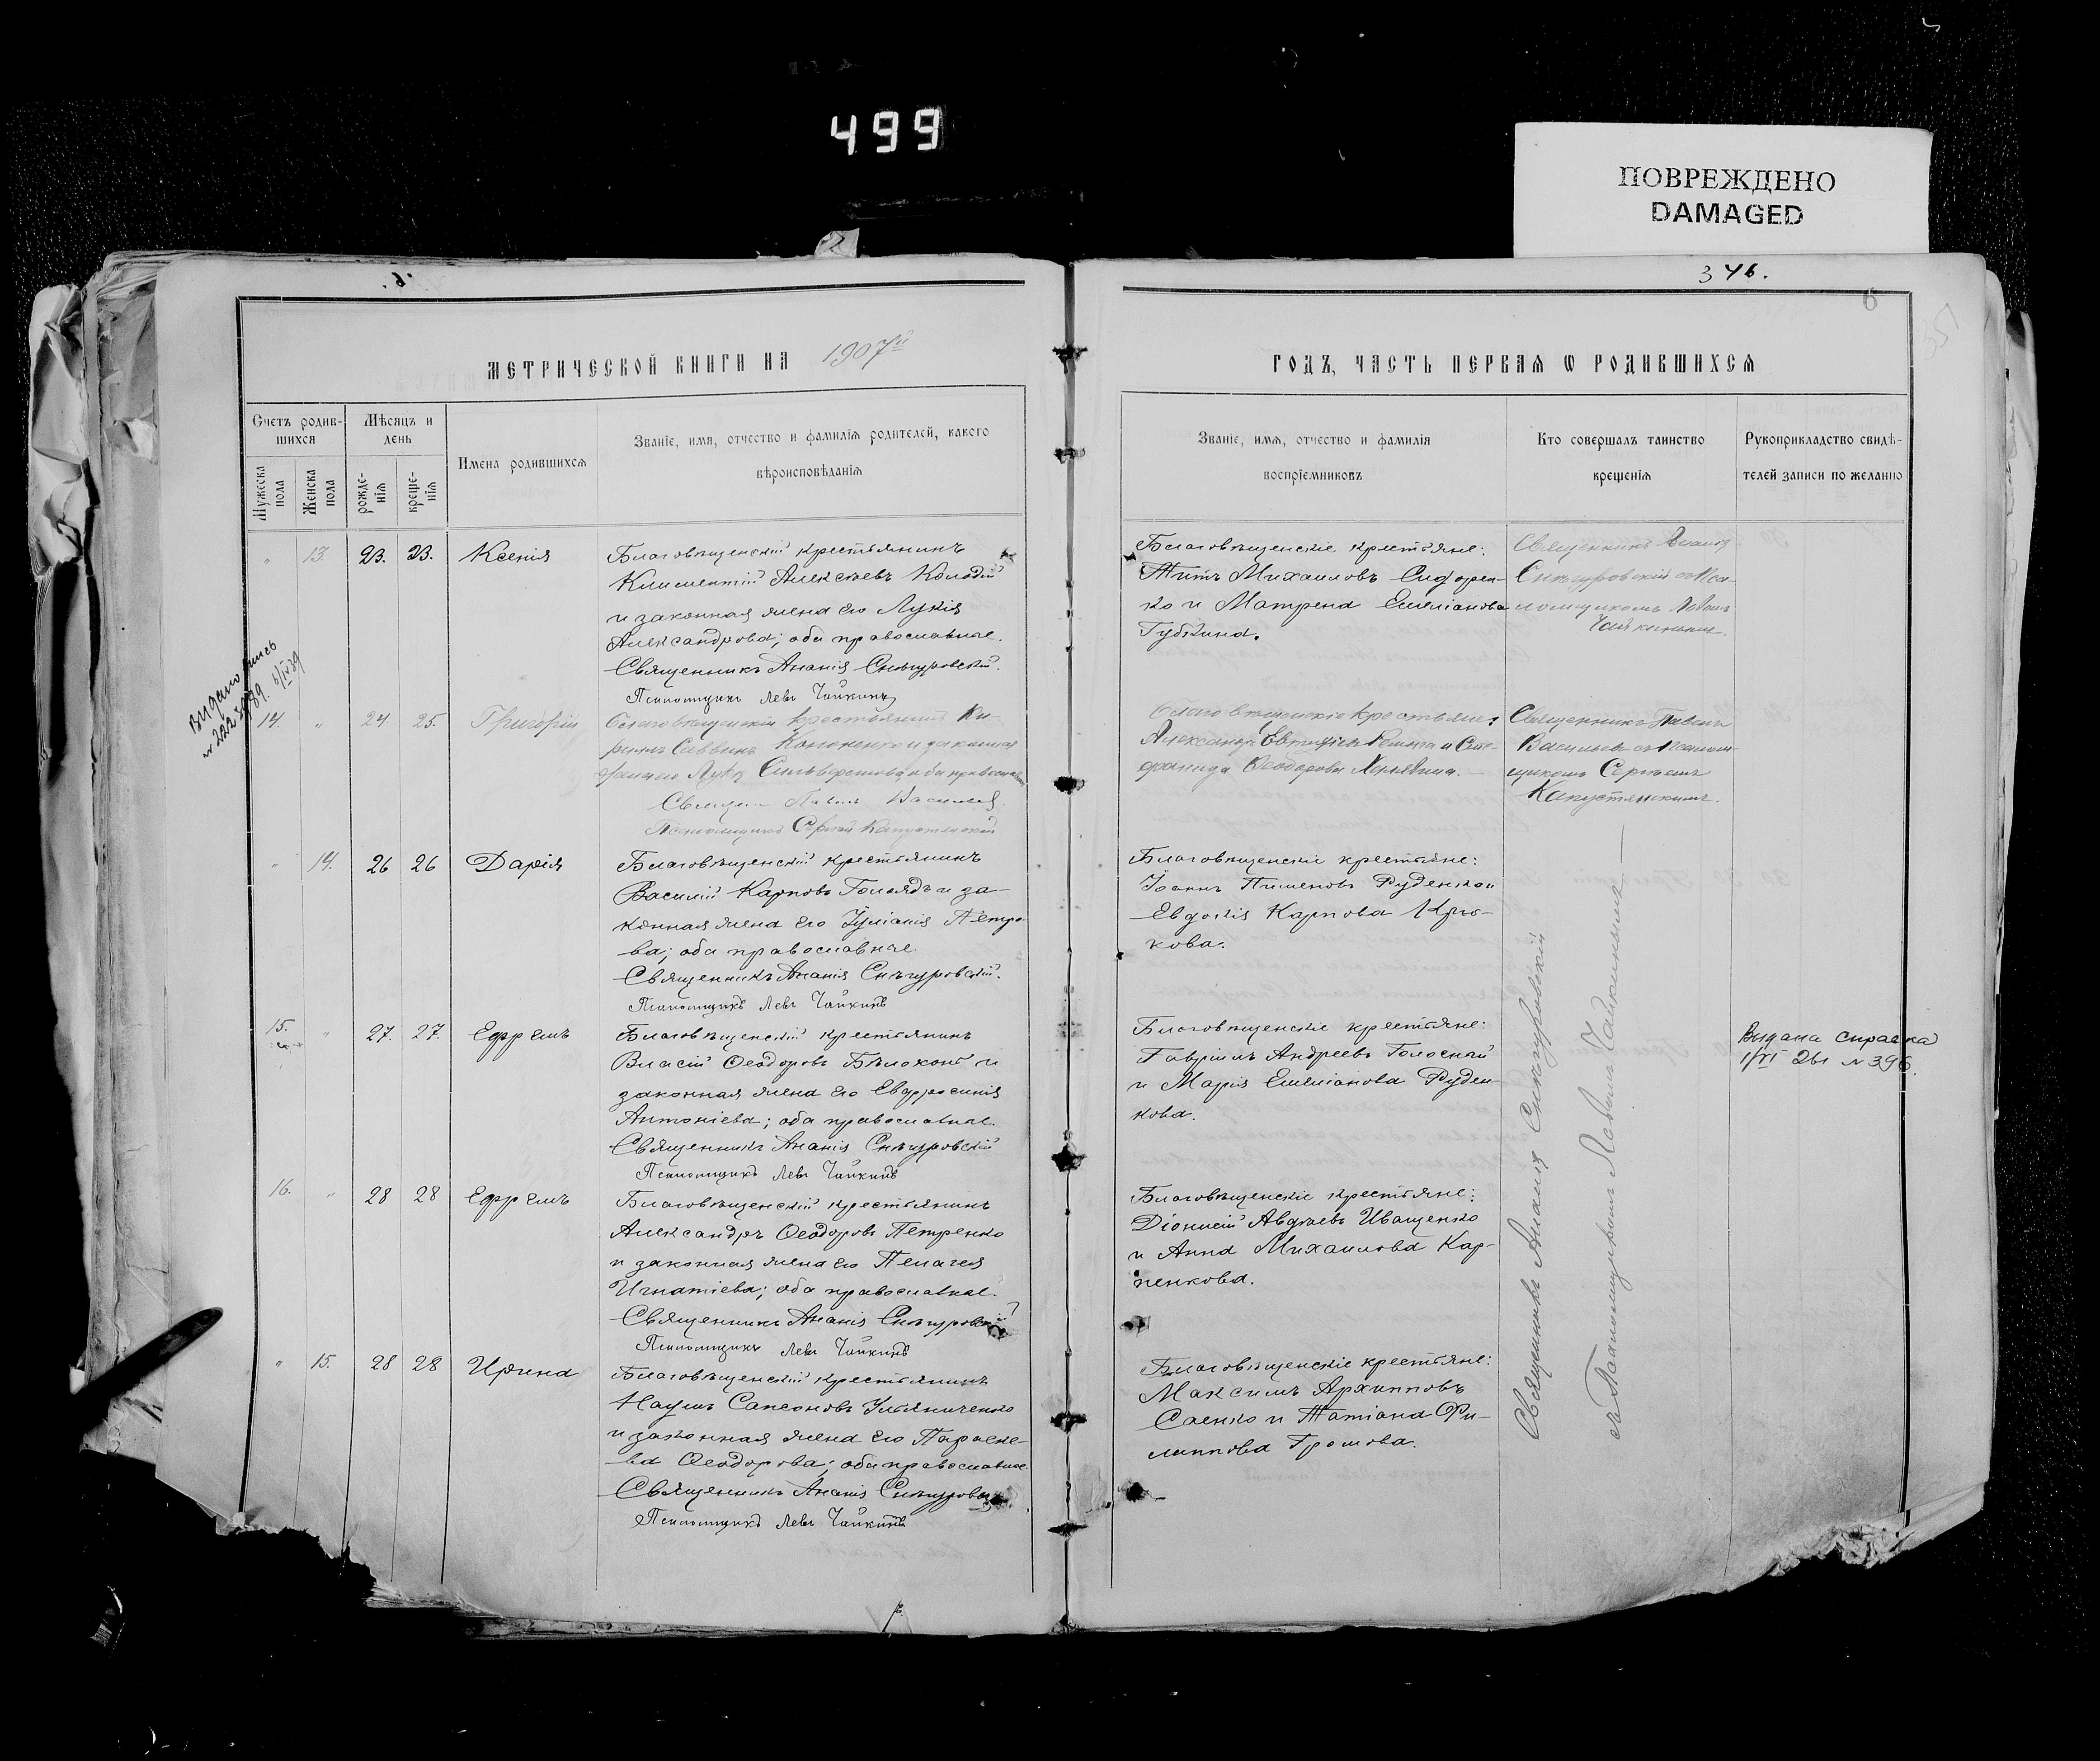 499
ПОВРЕЖДЕНО
DAMAGED
346.
6
351
МЕТРИЧЕСКОЙ КНИГИ НА 1907й
ГОДЪ, ЧАСТЬ ПЕРВАЯ Ѡ РОДИВШИХСЯ
Счетъ родив-
шихся
Мужеска
пола
Женска
пола
Мѣсяцъ и
день
рожде-
нія
креще-
нія
Имена родившихся
Званіе, имя, отчество и фамилія родителей, какого
вѣроисповѣданія
Званіе, имя, отчество и фамилія
воспріемниковъ
Кто совершалъ таинство
крещенія
Рукоприкладство свидѣ-
телей записи по желанію
" 13. 23. 23. Ксенія
Благовѣщенскій крестьянинъ
Климентій Алексѣевъ Колодій
и законная жена его Лукія
Александрова; оба православные.
Священникъ Ананія Снѣгуровскій.
Псаломщикъ Левъ Чайкинъ
Благовѣщенскіе крестьяне:
Титъ Михаиловъ Сидорен-
ко и Матрена Емеліанова
Губкина.
Священникъ Ананія
Снѣгуровскій съ Пса-
ломщикомъ Львомъ
Чайкинымъ.
Видано
14. " 24 25. Григорій
Благовѣщенскій крестьянинъ Ки-
риллъ Саввинъ Кононенко и законная
жена его Сильверстова, оба православные
Священ. Павелъ Васильевъ
Псаломщикъ Сергій Капустянскій
Благовѣщенскіе крестьяне:
Александръ Евтихіевъ и Сте-
фанида Ѳеодорова
Священникъ Павелъ
Васильевъ съ Псалом-
щикомъ Сергѣемъ
Капустянскимъ.
" 14. 26 26 Дарія
Благовѣщенскій крестьянинъ
Василій Карповъ Голядъ и за-
конная жена его Іуліанія Петро-
ва; оба православные.
Священникъ Ананія Снѣгуровскій.
Псаломщикъ Левъ Чайкинъ
Благовѣщенскіе крестьяне:
Іоаннъ Пименовъ Руденко и
Евдокія Карпова Крю-
кова.
15. " 27. 27. Ефремъ
Благовѣщенскій крестьянинъ
Власій Ѳеодоровъ Бѣлоконь и
законная жена его Евфросинія
Антоніева; оба православные.
Священникъ Ананія Снѣгуровскій
Псаломщикъ Левъ Чайкинъ
Благовѣщенскіе крестьяне:
Гавріилъ Андреевъ Голосный
и Марія Емеліанова Руден-
кова.
Видана справка
1/VI 26г № 396.
16. " 28 28 Ефремъ
Благовѣщенскій крестьянинъ
Александръ Ѳеодоровъ Петренко
и законная жена его Пелагея
Игнатіева; оба православные.
Священникъ Ананія Снѣгуровскій
Псаломщикъ Левъ Чайкинъ
Благовѣщенскіе крестьяне:
Діонисій Авдѣевъ Иващенко
и Анна Михаилова Кар-
пенкова.
" 15. 28 28 Ирина
Благовѣщенскій крестьянинъ
Наумъ Сапсоновъ Ульяниченко
и законная жена его Параске-
ва Ѳеодорова; оба православные.
Священникъ Ананія Снѣгуровскій
Псаломщикъ Левъ Чайкинъ
Благовѣщенскіе крестьяне:
Максимъ Архипповъ
Саенко и Татіана Фи-
липпова Громова.
Священникъ Ананія Снѣгуровскій
съ Псаломщикомъ Львомъ Чайкинымъ